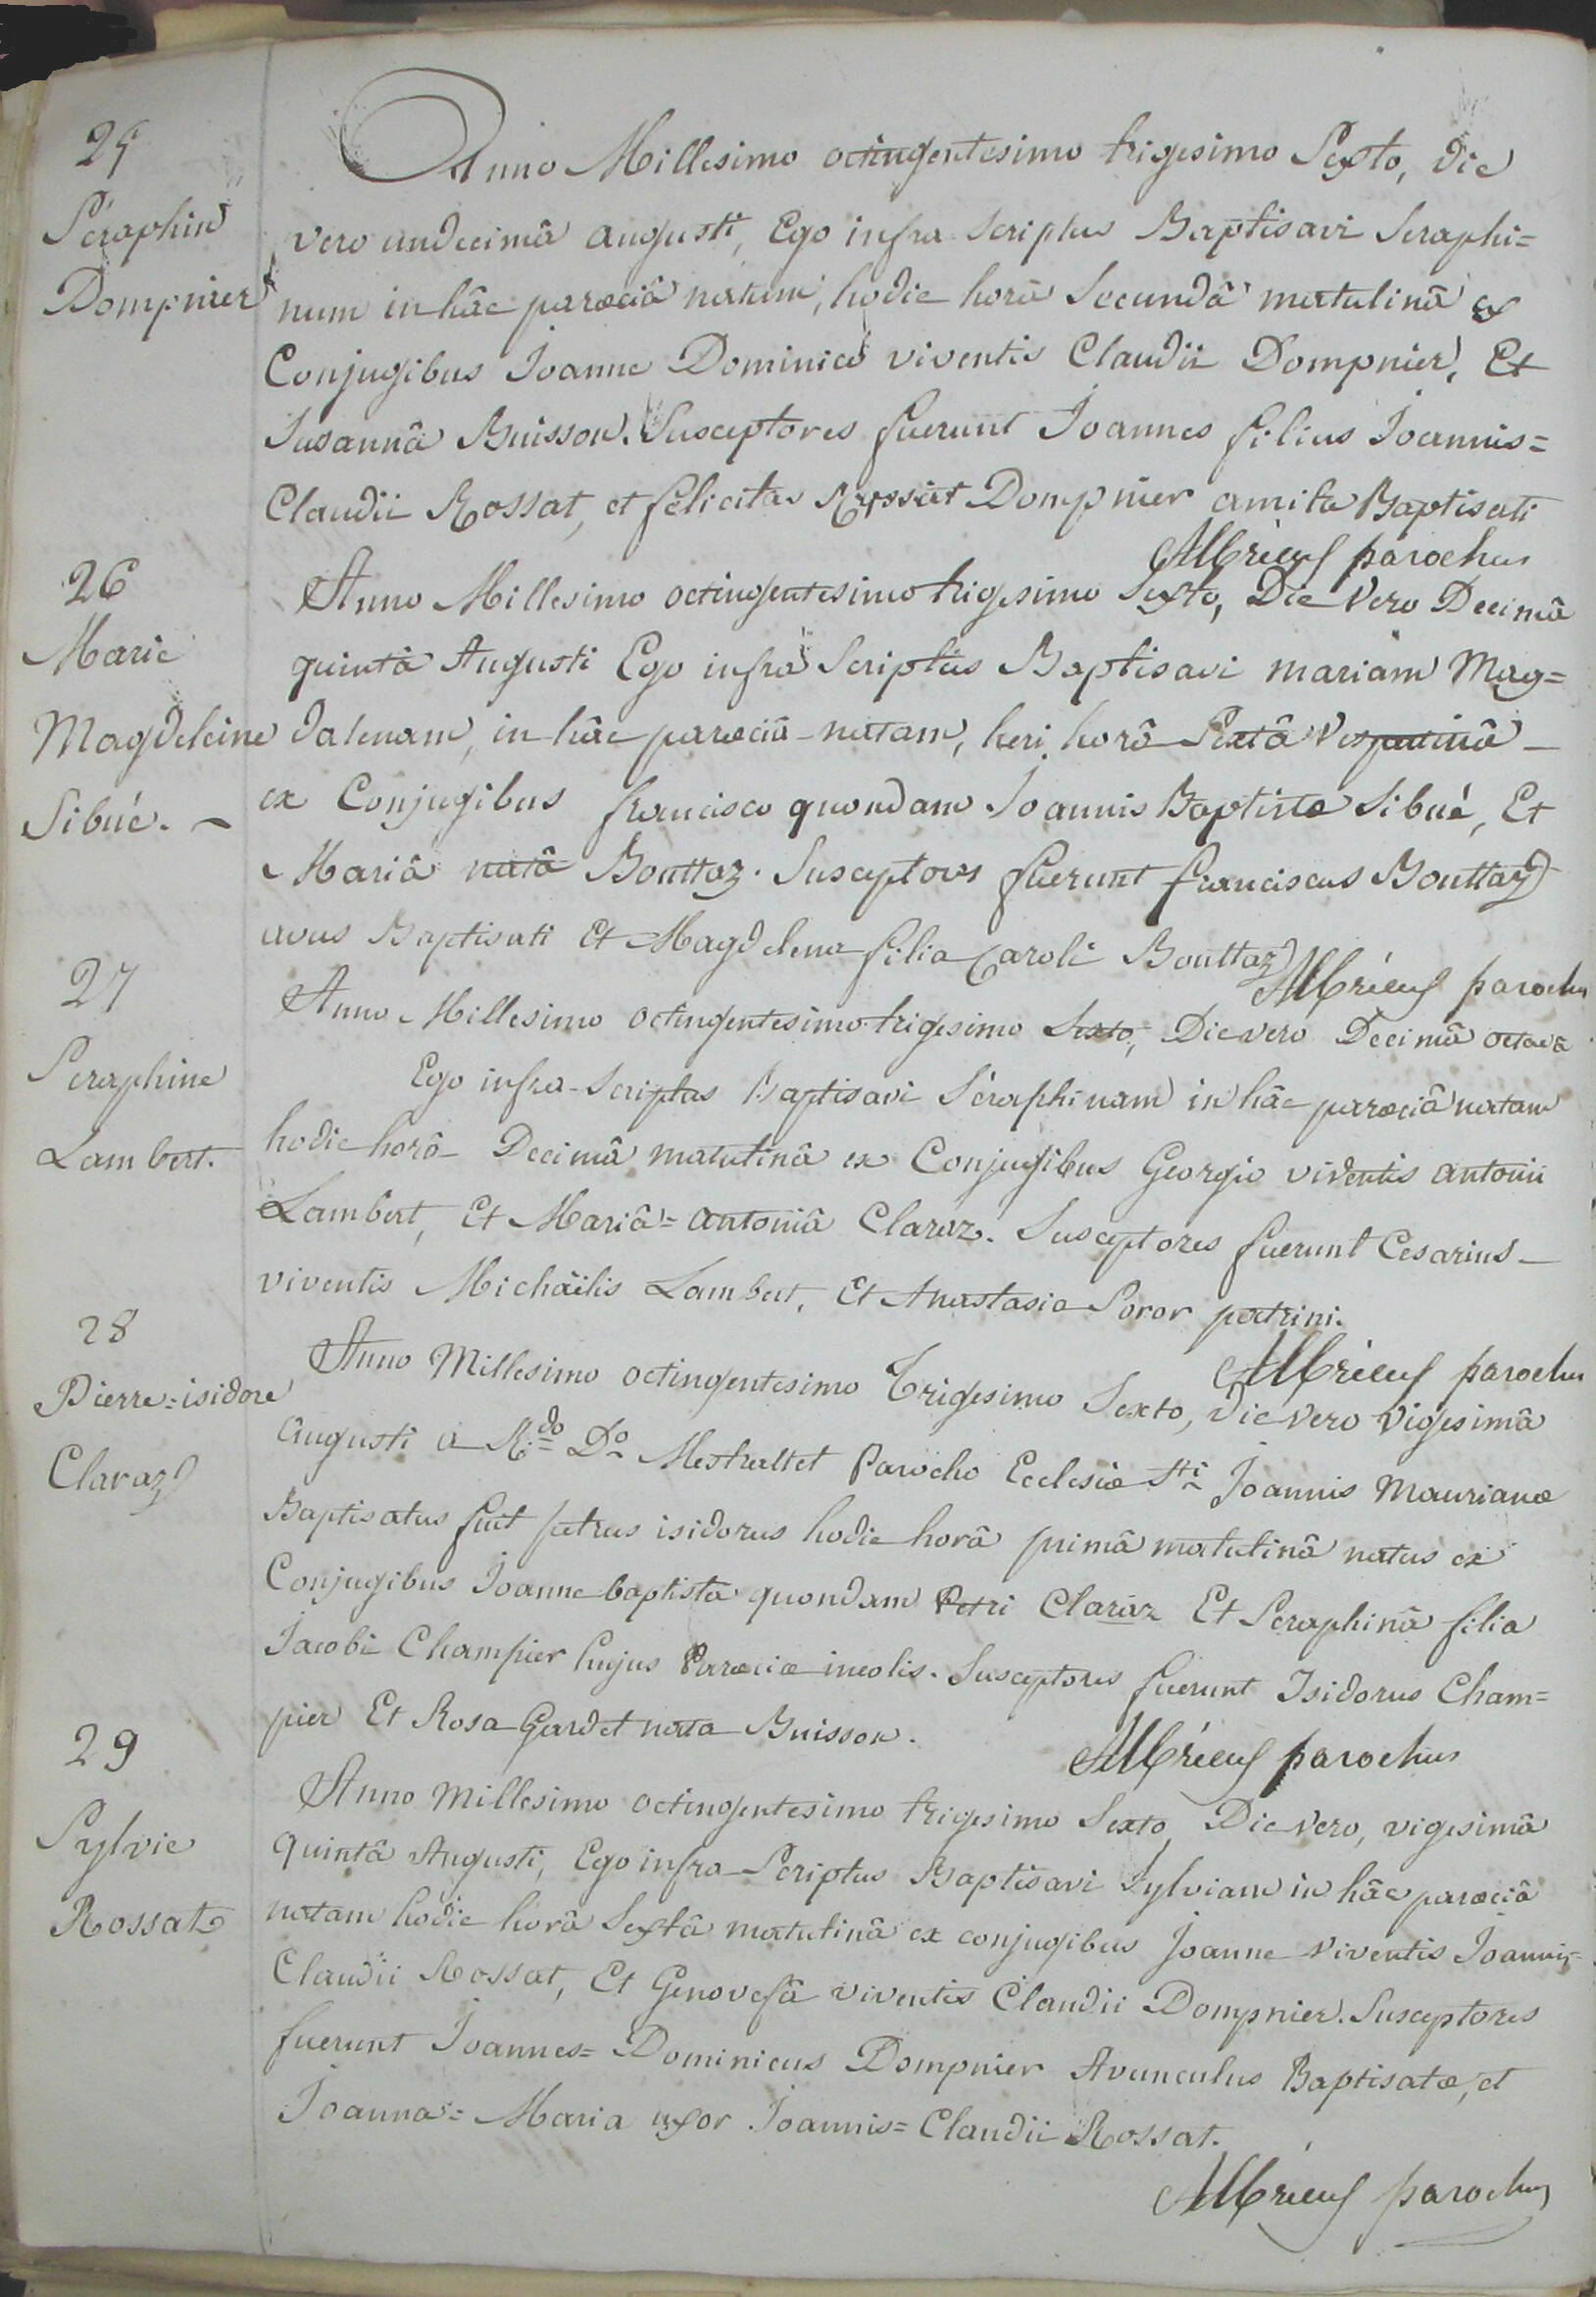 25
Séraphin
Dompnier
Anno Millesimo octingentesimo trigesimo Sexto, die
vero undecimâ augusti, Ego infra scriptus Baptisavi Seraphi=
num in hâc parœciâ natum, hodie horâ Secundâ matutinâ ex
Conjugibus Joanne Dominico viventis Claudii Dompnier, Et
Susannâ Buisson. Susceptores fuerunt Joannes filius Joannis=
Claudii Rossat, et félicitas Dompnier amita Baptisati
parochus
26
Marie
Magdeleine
Sibué.
Anno Millesimo octingentesimo trigesimo Sexto, Die Vero Decimâ
quintâ Augusti Ego infrà Scriptus Baptisavi mariam Mag=
dalenam, in hâc parœciâ natam, heri horâ Sextâ Vespertinâ
ex Conjugibus francisco quondam Joannis Baptistæ Sibué, Et
Mariâ natâ Bouttaz. Susceptores fuerunt franciscus Bouttaz
avus Baptisati Et Magdelena filia Caroli Bouttaz
parochus
27
Seraphine
Lambert.
Anno Millesimo octingentesimo trigesimo Sexto, Die vero Decimâ octavâ
Ego infra-Scriptus Baptisavi Séraphinam in hâc parœciâ natam
hodie horâ Decimâ matutinâ ex Conjugibus Georgio viventis antonii
Lambert, Et Mariâ=antoniâ Claraz. Susceptores fuerunt Cesarius
viventis Michäilis Lambert, Et Anastasia Soror patrini.
parochus
28
Pierre=isidore
Claraz
Anno Millesimo octingentesimo Trigesimo Sexto, die vero vigesimâ
augusti a R.do Do Mestrallet Parocho Ecclesiæ Sti Joannis Maurianæ
Baptisatus fuit petrus isidorus hodie horâ primâ matutinâ natus ex
Conjugibus Joanne baptista quondam Petri Claraz Et Seraphinâ filia
Jacobi Champier hujus Parœciæ incolis. Susceptores fuerunt Isidorus Cham=
pier Et Rosa Gardet nata Buisson.
parochus
29
Sylvie
Rossat
Anno Millesimo octingentesimo trigesimo Sexto, Die vero, vigesimâ
quintâ Augusti, Ego infra-Scriptus Baptisavi Sylviam in hâc parœciâ
natam hodie horâ Sextâ matutinâ ex conjugibus Joanne viventis Joannis=
Claudii Rossat, Et Genovefâ viventis Claudii Dompnier. Susceptores
fuerunt Joannes=Dominicus Dompnier Avunculus Baptisatæ, et
Joanna=Maria uxor Joannis=Claudii Rossat.
parochus